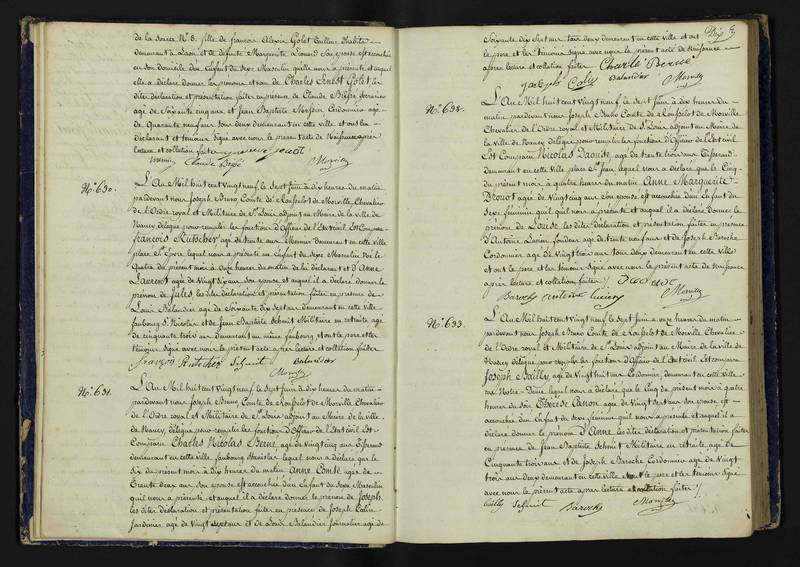 de la source No 8. fille de françois Alexis Golet Tailleur d'habits
demeurant à Laon et de défunte Marguerite Lionard Son épouse est accouchée
en Son domicile d'un Enfant du Sexe Masculin qu'elle nous a présenté et auquel
elle a déclaré donner les prénoms et nom de Charles Ernest Golet les
dites déclaration et présentation faites en présence de Claude Serrurier
agé de Soixante cinq ans et Jean Baptiste Cordonnier agé
de Quarante neuf ans tous deux demeurant en cette ville et ont la
déclarante et témoins Signé avec nous le présent acte de Naissance après
lecture et collation faites
Claude Morville
No. 630.
L'An Mil huit cent vingt neuf, le Sept Juin à dix heures du matin
pardevant nous Joseph Bruno Comte de Rousselot de Morville, Chevalier
de l'Ordre royal et Militaire de St Louis adjoint au Maire de la ville de
Nancy, délégué pour remplir les fonctions d'Officier de l'Etat civil Est Comparu
françois Rutscher agé de trente ans Meunier demeurant en cette ville
place St Epvre, lequel nous a présenté un Enfant du Sexe Masculin Né le
Quatre du présent mois à Onze heures du matin, de lui déclarant et d'Anne
Laurent agée de Vingt Six ans, Son épouse, et auquel il a déclaré donner le
prénom de Jules, les dites déclaration et présentation faites en présence de
Louis Balandier agé de Soixante dix Sept ans demeurant en cette ville
faubourg St Nicolas et de Jean Baptiste Schmit Militaire en retraite agé
de cinquante trois ans demeurant au même faubourg et ont le père et les
témoins Signé avec nous le présent acte après lecture et collation faites
françois Rutscher Schmit Balandier
Morville
No. 631.
L'An Mil huit cent Vingt neuf, le Sept Juin à dix heures du matin
pardevant nous Joseph Bruno Comte de Rousselot de Morville, Chevalier
de l'Ordre royal et Militaire de St Louis adjoint au Maire de la ville
de Nancy, délégué pour remplir les fonctions d'Officier de l'Etat civil Est
Comparu Charles Nicolas Berné agé de Vingt cinq ans Tisserand
demeurant en cette ville, faubourg Stanislas lequel nous a déclaré que le
Six du présent mois à Dix heures du matin Anne Comte agée de
Trente deux ans Son épouse est accouchée d'un Enfant du Sexe Masculin
qu'il nous a présenté et auquel il a déclaré donner le prénom de Joseph,
les dites déclaration et présentation faites en présence de Joseph Colin
Jardinier, agé de Vingt Sept ans et de Louis Balandier Journalier agé de
Soixante dix Sept ans tous deux demeurant en cette ville et ont
le père et les témoins Signé avec nous le présent acte de Naissance
après lecture et collation faites Charle Berné
Joseph Colin Balandier Morville
No. 632.
L'An Mil huit cent Vingt neuf, le Sept Juin à dix heures du
matin pardevant nous Joseph Bruno Comte de Rousselot de Morville,
Chevalier de l'Ordre royal et Militaire de St Louis adjoint au Maire de la
ville de Nancy délégué pour remplir les fonctions d'Officier de l'Etat civil
Est Comparu Nicolas agé de trente trois ans Tisserand
demeurant en cette ville place St Jean, lequel nous a déclaré que le Cinq
du présent mois à quatre heures du matin Anne Marguerite
Drouot agée de Vingt cinq ans Son épouse est accouchée d'un Enfant du
Sexe féminin qu'il nous a présenté et auquel il a déclaré donner le
prénom de Louise, les dites déclaration et présentation faites en présence
d'Antoine Lucien fondeur agé de trente neuf ans et de Joseph Baroche
Cordonnier agé de Vingt trois ans tous deux demeurant en cette ville
et ont le père et les témoins Signé avec nous le présent acte de Naissance
après lecture et collation faites
Baroche antoine lucien Morville
No. 633.
L'An Mil huit cent Vingt neuf, le Sept Juin à onze heures du matin
pardevant nous Joseph Bruno Comte de Rousselot de Morville Chevalier
de l'Ordre royal et Militaire de St Louis adjoint au Maire de la ville de
Nancy délégué pour remplir les fonctions d'Officier de l'Etat civil Est comparu
Joseph Bailly, agé de Vingt huit ans Cordonnier, demeurant en cette ville
rue Notre-Dame, lequel nous a déclaré que le Cinq du présent mois à quatre
heures du Soir Thérèse Anon agée de Vingt Sept ans Son épouse est
accouchée d'un Enfant du Sexe féminin qu'il nous a présenté et auquel il a
déclaré donner le prénom d'Anne les dites déclaration et présentation faites
en présence de Jean Baptiste Schmit Militaire en retraite, agé de
Cinquante trois ans et de Joseph Baroche Cordonnier agé de Vingt
trois ans tous deux demeurant en cette ville et ont le père et les témoins Signé
avec nous le présent acte après lecture et collation faites
Bailly Schmit Baroche Morville